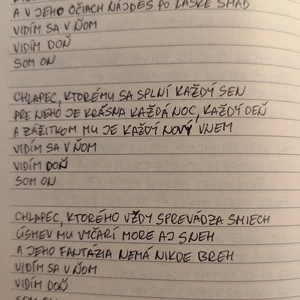 A V JEHO OČIACH NÁJDEŠ PO LÁSKE SMAD
VIDÍM SA V ŇOM
VIDÍM DOŇ
SOM ON
CHLAPEC, KTORÉMU SA SPLNÍ KAŽDÝ SEN
PRE NEHO JE KRÁSNA KAŽDÁ NOC, KAŽDÝ DEŇ
A ZÁŽITKOM MU JE KAŽDÝ NOVÝ VNEM
VIDÍM SA V ŇOM
VIDÍM DOŇ
SOM ON
CHLAPEC, KTORÉHO VŽDY SPREVÁDZA SMIECH
ÚSMEV MU VYČARÍ MORE AJ SNEH
A JEHO FANTÁZIA NEMÁ NIKDE BREH
VIDÍM SA V ŇOM
VIDÍM DOŇ
SOM ON